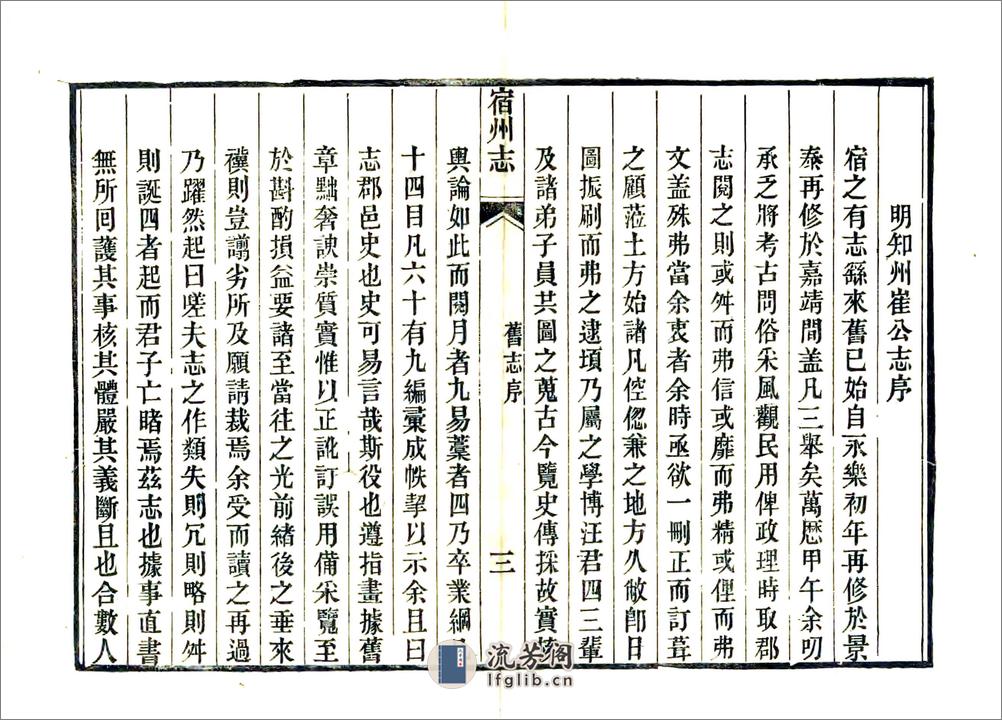 明知州崔公志序
宿之有志繇來舊已始自永樂初年再修於景
泰再修於嘉靖間盖凡三舉矣萬歷甲午余叨
承乏將考古問俗采風觀民用俾政理時取郡
志閱之則或舛而弗信或靡而弗精或俚而弗
文盖殊弗當余衷者余時亟欲一刪正而訂葺
之顧蒞土方始諸凡倥偬兼之地方久敝卽日
圖振刷而弗之逮頃乃屬之學博汪君四三輩
及諸弟子員共圖之蒐古今覽史傳採故實
宿州志
舊志序
三
輿論如此而閱月者九易藁者四乃卒業綱
十四目凡六十有九編彙成帙挈以示余且曰
志郡邑史也史可易言哉斯役也遵指畫據舊
章黜奢諛崇質實惟以正訛訂誤用備采覽至
於斟酌損益要諸至當往之光前緒後之垂來
禩則豈譾劣所及願請裁焉余受而讀之再過
乃躍然起曰嗟夫志之作類失則冗則略則舛
則誕四者起而君子亡睹焉茲志也據事直書
無所回護其事核其體嚴其義斷且也合數人
流芳阁
lfglib.cn